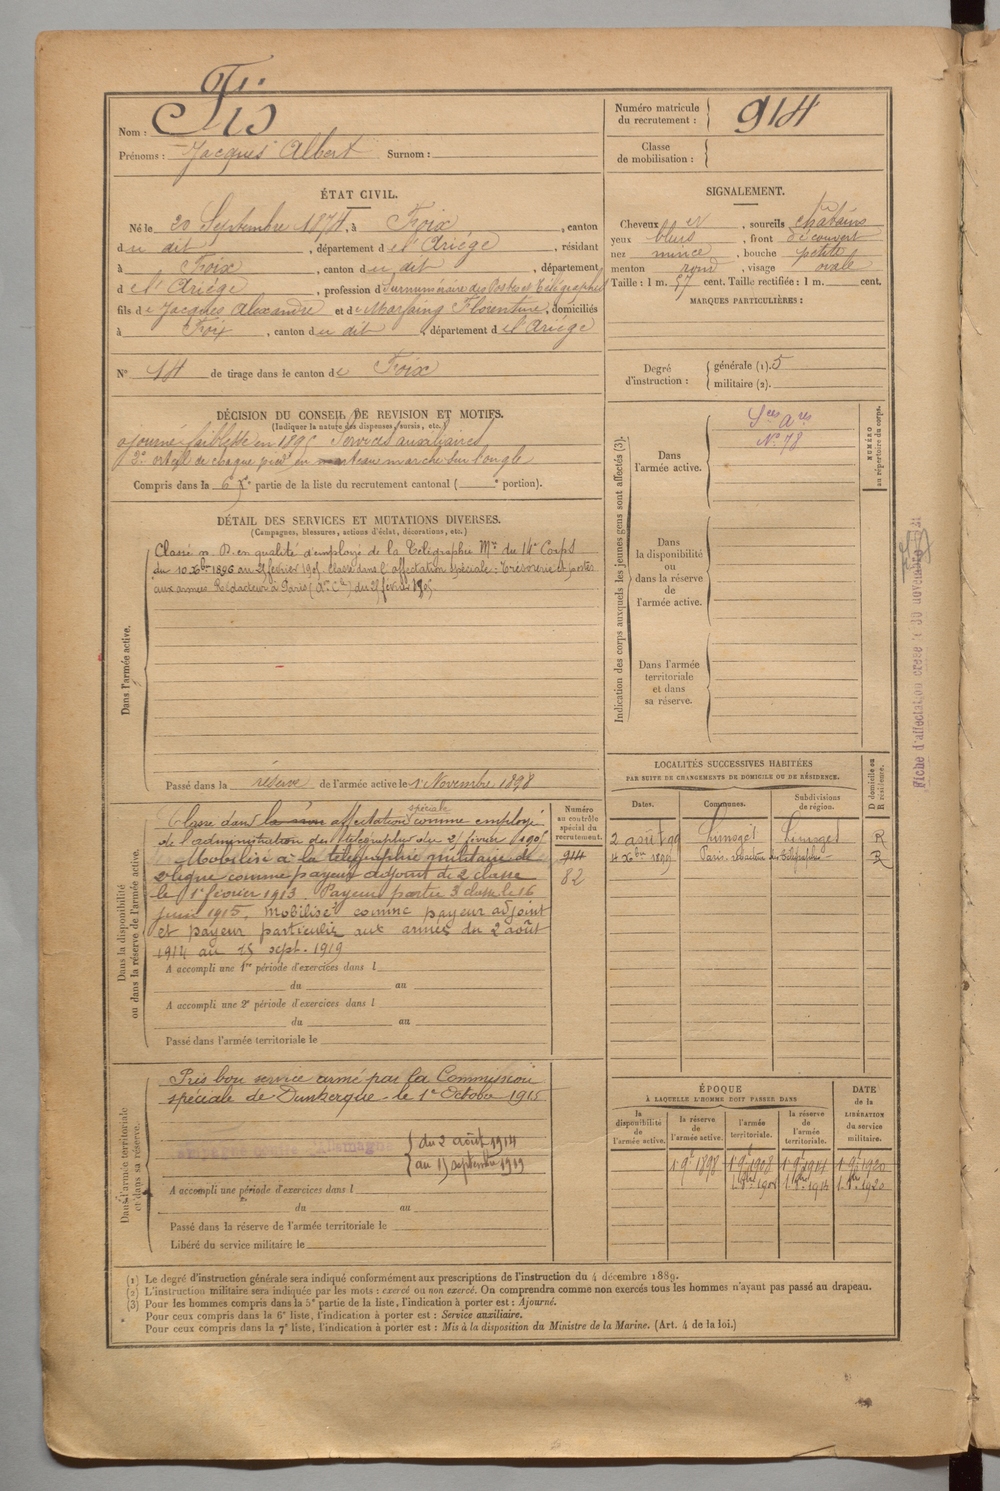 Nom : Fis
Prénoms : Jacques Albert Surnom :
Numéro matricule du recrutement : 914
Classe de mobilisation :
ÉTAT CIVIL.
Né le 20 Septembre 1874, à Foix, canton
du dit, département de l'Ariège, résidant
à Foix, canton du dit, département
de l'Ariège, profession de Surnuméraire des Postes et Télégraphes
fils de Jacques Alexandre et de Marfaing Florentine, domiciliés
à Foix, canton du dit, département de l'Ariège
N° 14 de tirage dans le canton de Foix
SIGNALEMENT.
Cheveux et, sourcils châtains
yeux bleus, front découvert
nez mince, bouche petite
menton rond, visage ovale
Taille : 1 m. 57 cent. Taille rectifiée : 1 m. cent.
MARQUES PARTICULIÈRES :
Degré d'instruction : générale (1). 5
militaire (2).
DÉCISION DU CONSEIL DE REVISION ET MOTIFS.
(Indiquer la nature des dispenses, sursis, etc.)
ajourné faiblesse en 1895 Services auxiliaires
2e orteil de chaque pied en marteau marche sur l'ongle
Compris dans la 6e partie de la liste du recrutement cantonal ( e portion).
DÉTAIL DES SERVICES ET MUTATIONS DIVERSES.
(Campagnes, blessures, actions d'éclat, décorations, etc.)
Dans l'armée active.
Classé n. D. en qualité d'employé de la Télégraphie Mre du 14e Corps
du 10 Xbre 1896 au 21 février 1905. Classé dans l'affectation spéciale : Trésorerie et postes
aux armées Rédacteur à Paris du 21 février 1905
Passé dans la réserve de l'armée active le 1er Novembre 1898
Indication des corps auxquels les jeunes gens sont affectés (3).
Dans l'armée active.
Sces Ares
N° 78
Dans la disponibilité ou dans la réserve de l'armée active.
Dans l'armée territoriale et dans sa réserve.
NUMÉRO au répertoire du corps.
Fiche d'affectation créée le 30 novembre
Dans la disponibilité ou dans la réserve de l'armée active.
Classé dans affectation spéciale comme employé
de l'administration des télégraphes du 21 février 1905
Mobilisé à la télégraphie militaire de
2e ligne comme payeur adjoint de 2e classe
le 1er février 1913. Payeur partier 3 classe le 16
juin 1915. Mobilisé comme payeur adjoint
et payeur particulier aux armées du 2 août
1914 au 15 sept. 1919
Numéro au contrôle spécial du recrutement.
914
82
A accompli une 1re période d'exercices dans l
du au
A accompli une 2e période d'exercices dans l
du au
Passé dans l'armée territoriale le
LOCALITÉS SUCCESSIVES HABITÉES
PAR SUITE DE CHANGEMENTS DE DOMICILE OU DE RÉSIDENCE.
Dates. Communes. Subdivisions de région. D domicile ou R résidence.
2 août 99 Limoges Limoges R
4 Xbre 1899 Paris, rédacteur des Télégraphes R
Dans l'armée territoriale et dans sa réserve.
Pris bon service armé par la Commission
spéciale de Dunkerque le 1er Octobre 1915
Campagne contre l'Allemagne
du 2 août 1914
au 15 septembre 1919
A accompli une période d'exercices dans l
du au
Passé dans la réserve de l'armée territoriale le
Libéré du service militaire le
ÉPOQUE
À LAQUELLE L'HOMME DOIT PASSER DANS
la disponibilité de l'armée active.
la réserve de l'armée active.
l'armée territoriale.
la réserve de l'armée territoriale.
DATE de la LIBÉRATION du service militaire.
1er 9bre 1898 1er 9bre 1908 1er 9bre 1914 1er 9bre 1920
(1) Le degré d'instruction générale sera indiqué conformément aux prescriptions de l'instruction du 4 décembre 1889.
(2) L'instruction militaire sera indiquée par les mots : exercé ou non exercé. On comprendra comme non exercés tous les hommes n'ayant pas passé au drapeau.
(3) Pour les hommes compris dans la 5e partie de la liste, l'indication à porter est : Ajourné.
Pour ceux compris dans la 6e liste, l'indication à porter est : Service auxiliaire.
Pour ceux compris dans la 7e liste, l'indication à porter est : Mis à la disposition du Ministre de la Marine. (Art. 4 de la loi.)